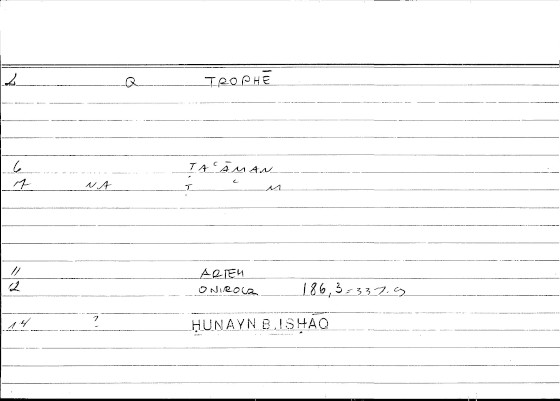 2 Q TROPHĒ
6 ṬAʿĀMAN
7 NA Ṭ ʿ M
11 ARTEM
12 ONIROCR 186,3=337.9
14 ? ḤUNAYN B.ISḤĀQ